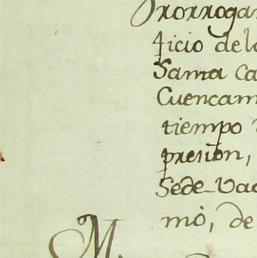 Prorroga
ficio de l
Santa Ca
Cuencam
tiempo
presion,
Sede Vac
mò, de
M.